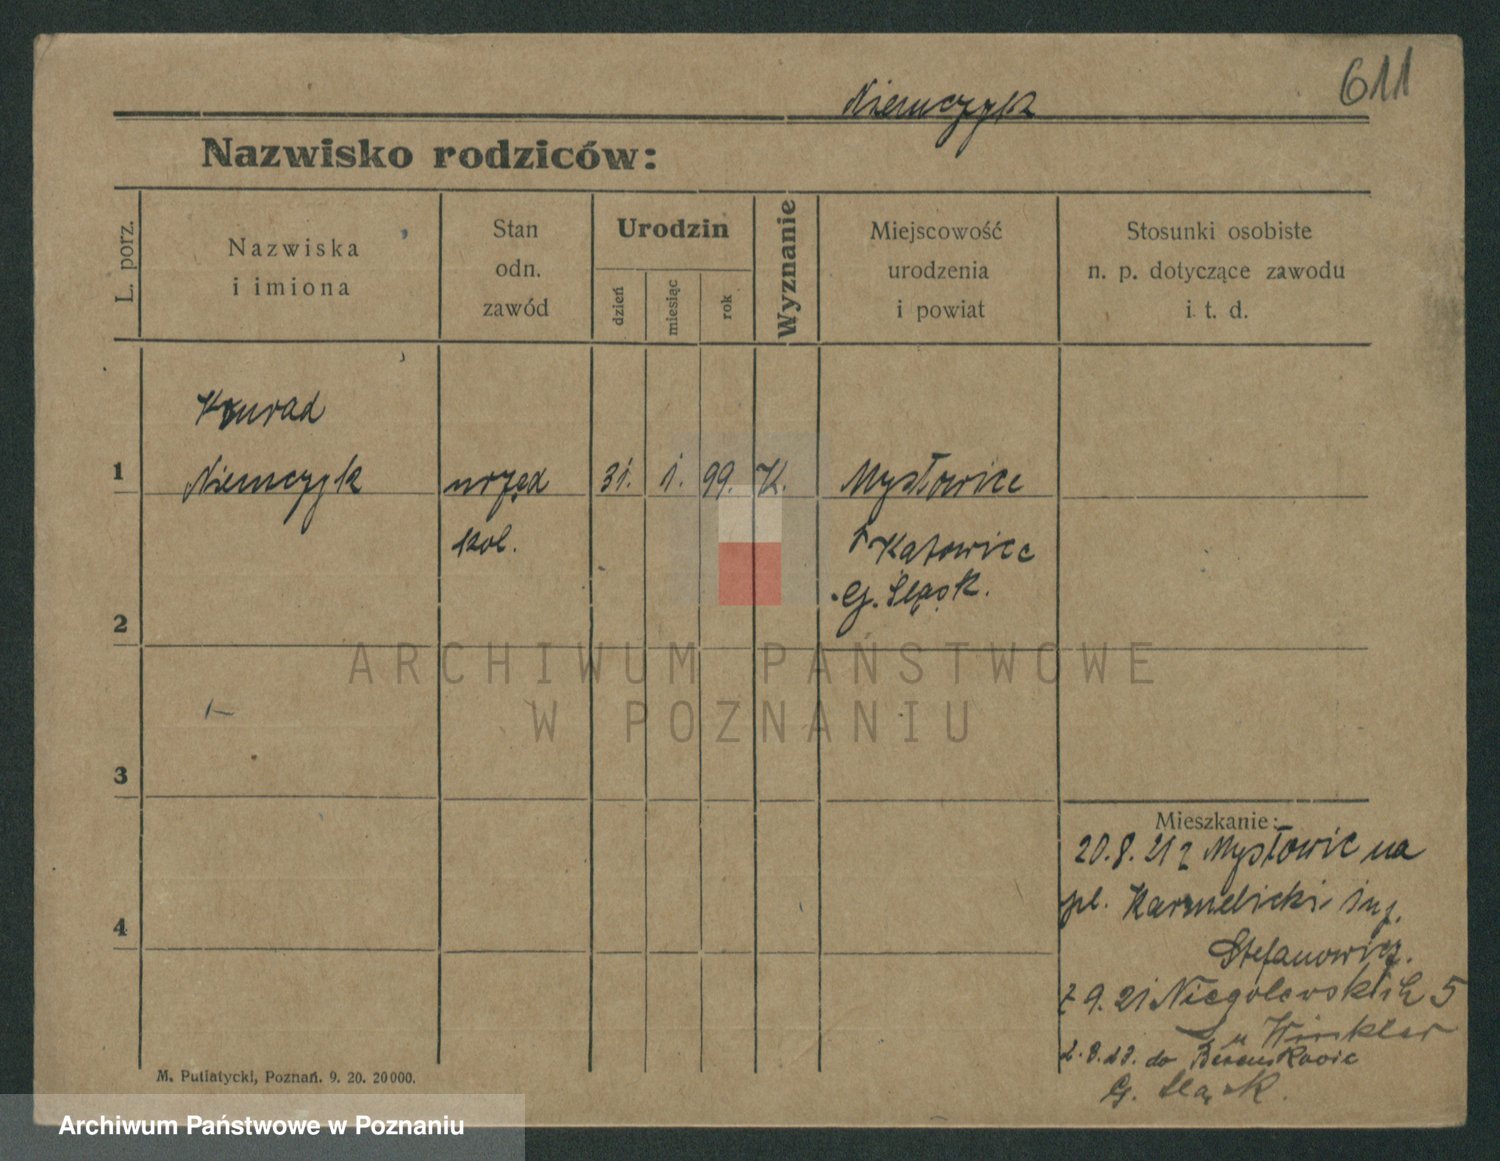 611
Niemczyk
Nazwisko rodziców:
L. porz.
Nazwiska
i imiona
Stan
odn.
zawód
Urodzin
dzień
miesiąc
rok
Wyznanie
Miejscowość
urodzenia
i powiat
Stosunki osobiste
n. p. dotyczące zawodu
i. t. d.
Konrad
1 Niemczyk urzęd 31. 1. 99. K. Mysłowice
kol.
Katowice
G. Śląsk.
2
ARCHIWUM PAŃSTWOWE
W POZNANIU
3
Mieszkanie:
20.8.21 z Mysłowic na
pl. Karmelicki inż.
4
Stefanowicz.
9.21 Niegolewskich 5
u Winkler
2.8.23. do
G. Śląsk.
M. Putiatycki, Poznań. 9. 20. 20000.
Archiwum Państwowe w Poznaniu